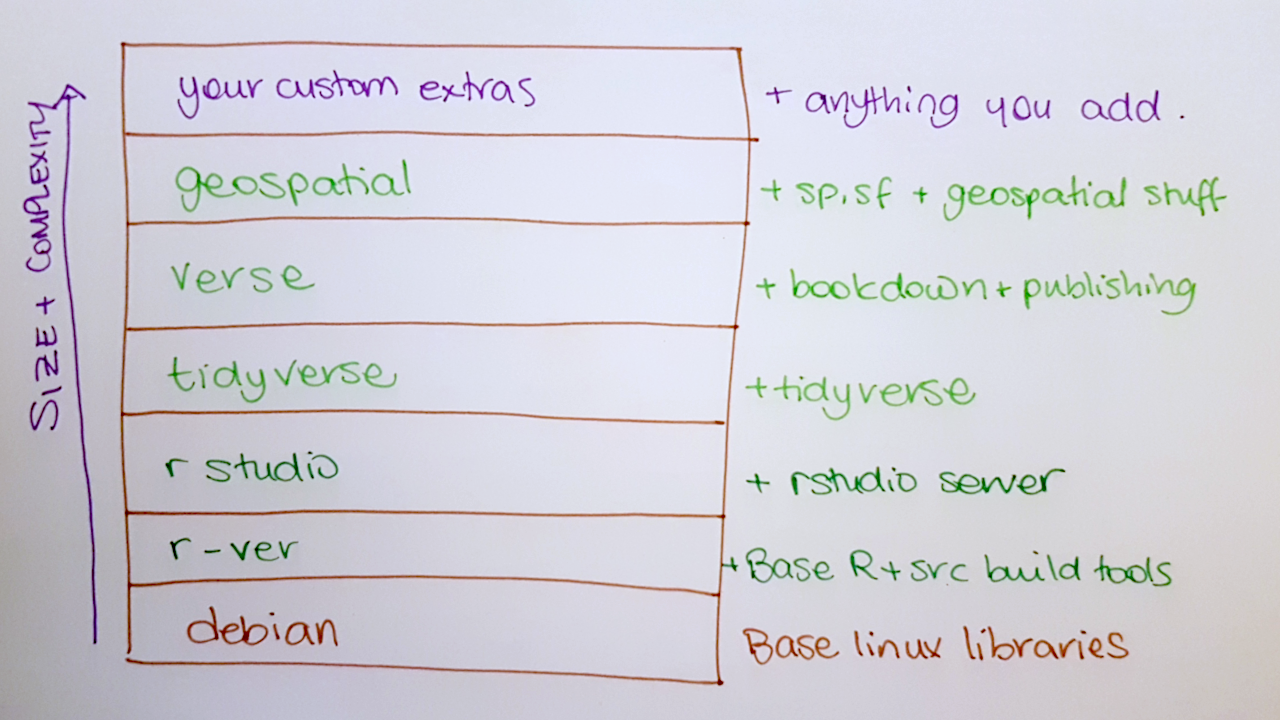 your custom extras + anything you add.
geospatial + sp,sf + geospatial stuff
verse + bookdown + publishing
tidyverse + tidyverse
r studio + rstudio server
r-ver + Base R + src build tools
debian Base linux libraries
SIZE + COMPLEXITY